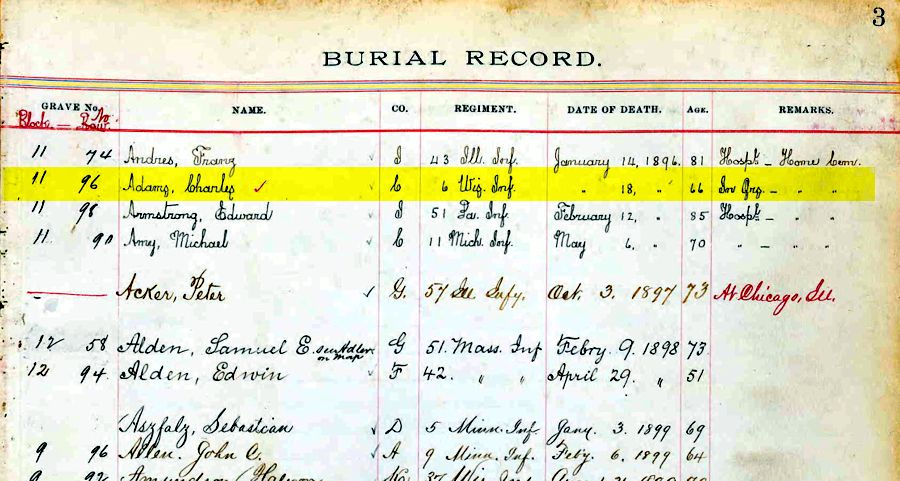 3
BURIAL RECORD.
GRAVE No. NAME. CO. REGIMENT. DATE OF DEATH. AGE. REMARKS.
Block. — Row. No.
11 74 Andres, Franz I 43 Ill. Inf. January 14, 1896. 81 Hospt. — Home Cem.
11 96 Adams, Charles ✓ C 6 Wis. Inf. " 18, " 66 In Grs. — " "
11 98 Armstrong, Edward I 51 Pa. Inf. February 12, " 85 Hospt. — " "
11 90 Amy, Michael ✓ C 11 Mich. Inf. May 6, " 70 " — " "
— Acker, Peter ✓ G. 57 Ill Infy. Oct. 3. 1897 73 At Chicago, Ill.
12 58 Alden, Samuel E. see Adler on map G 51. Mass. Inf Febry. 9. 1898 73
12 94. Alden, Edwin ✓ F 42. " " April 29. " 51
Aszfalz, Sebastian ✓ D 5 Minn. Inf. Jany. 3. 1899 69
9 96 Allen. John C. ✓ A 9 Minn. Inf. Feby. 6. 1899 64
9 Amundson 37 Wis